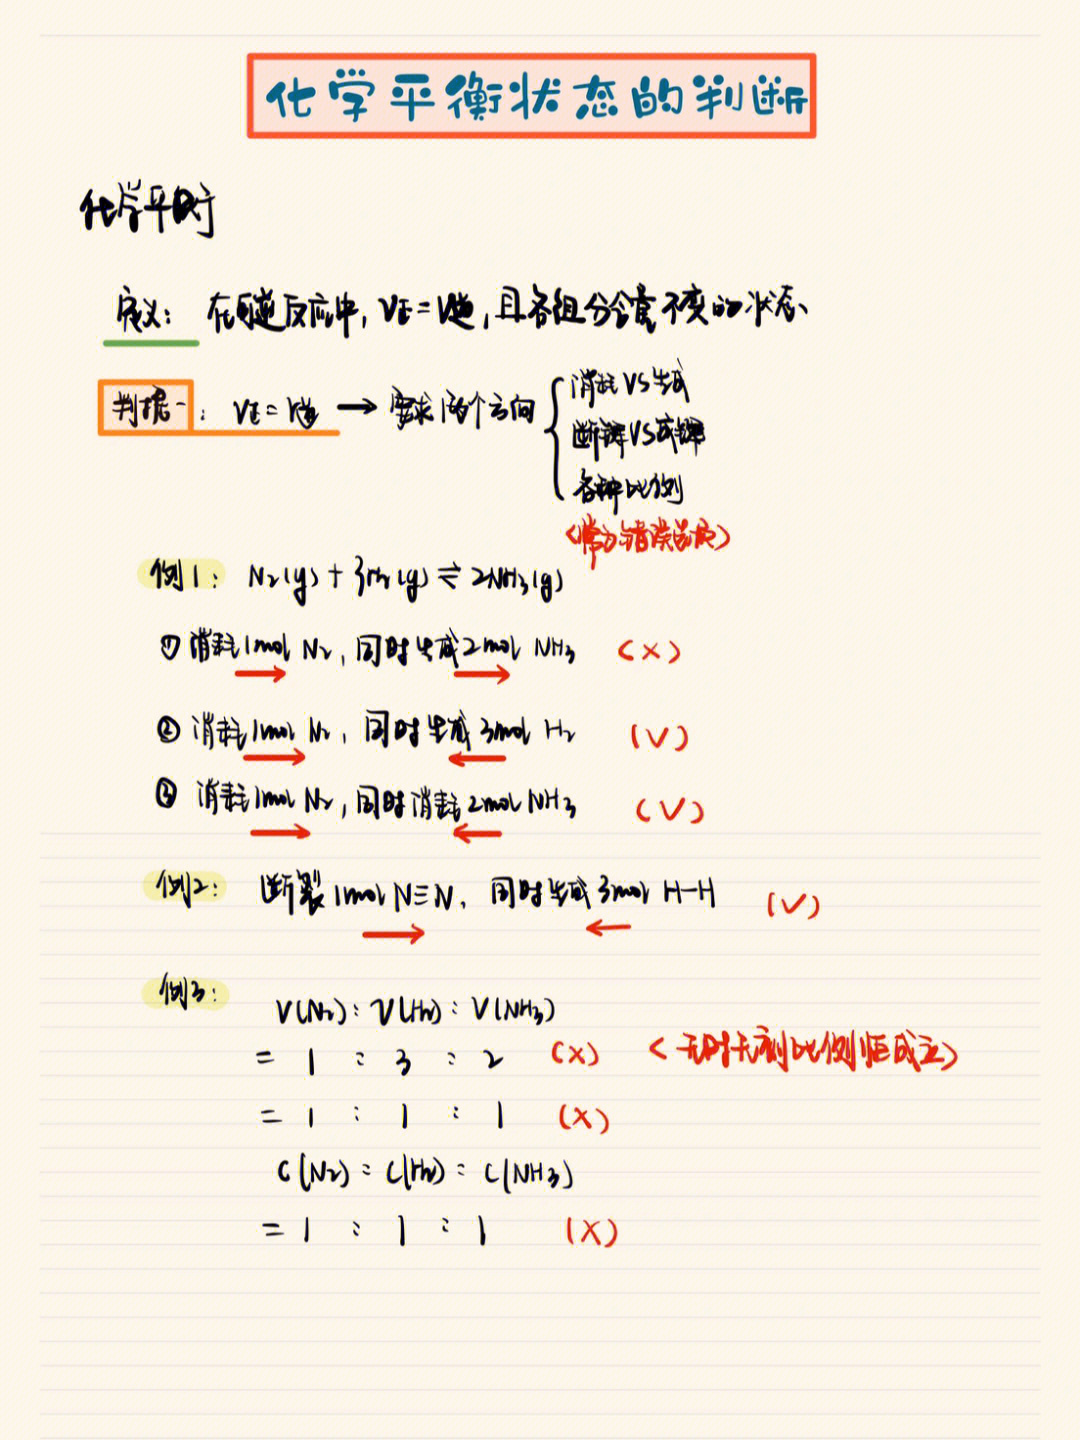 化学平衡状态的判断
化学平衡
定义：在可逆反应中，V正=V逆，且各组分含量不变的状态、
判据一：V正=V逆→要求两个方向
消耗VS生成
断键VS成键
各种比例
（常为错误选项）
例1：N₂(g)+3H₂(g)⇌2NH₃(g)
① 消耗1mol N₂，同时生成2mol NH₃ (×)
② 消耗1mol N₂，同时生成3mol H₂ (√)
③ 消耗1mol N₂，同时消耗2mol NH₃ (√)
例2：断裂1mol N≡N，同时生成3mol H-H (√)
例3：
V(N₂)：V(H₂)：V(NH₃)
= 1 : 3 : 2 (×) （无时无刻比例恒成立）
= 1 : 1 : 1 (×)
C(N₂)：C(H₂)：C(NH₃)
= 1 : 1 : 1 (×)